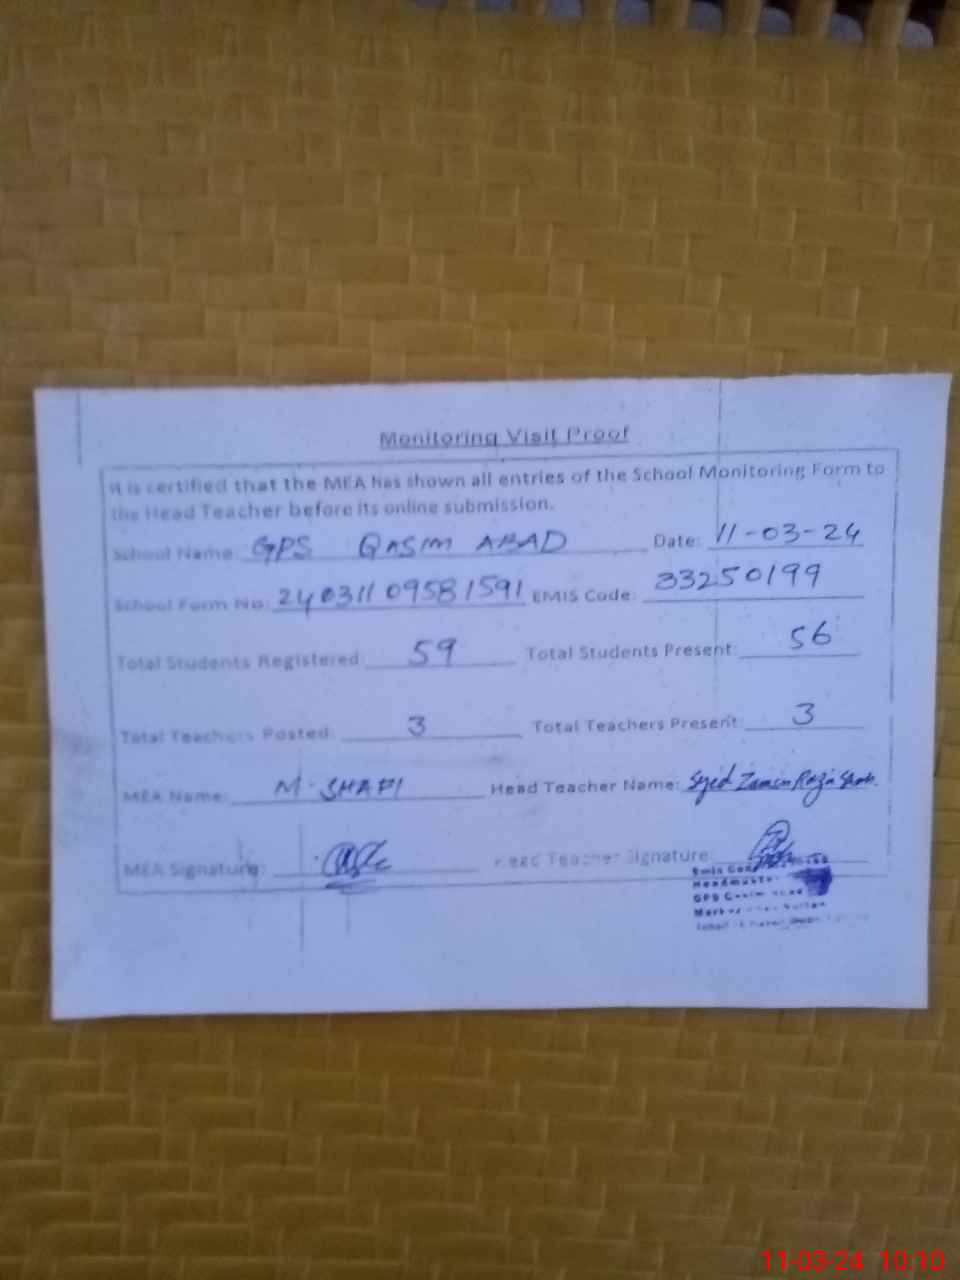 Monitoring Visit Proof
It is certified that the MEA has shown all entries of the School Monitoring Form to
the Head Teacher before its online submission.
School Name: GPS QASIM ABAD Date: 11-03-24
School Form No: 24031109581591 EMIS Code: 33250199
Total Students Registered: 59 Total Students Present: 56
Total Teachers Posted: 3 Total Teachers Present: 3
MEA Name: M. SHAFI Head Teacher Name: Syed Zamin Raza Shah.
MEA Signature: Head Teacher Signature:
Emis
Headmaster
GPS Qasim
11-03-24 10:10